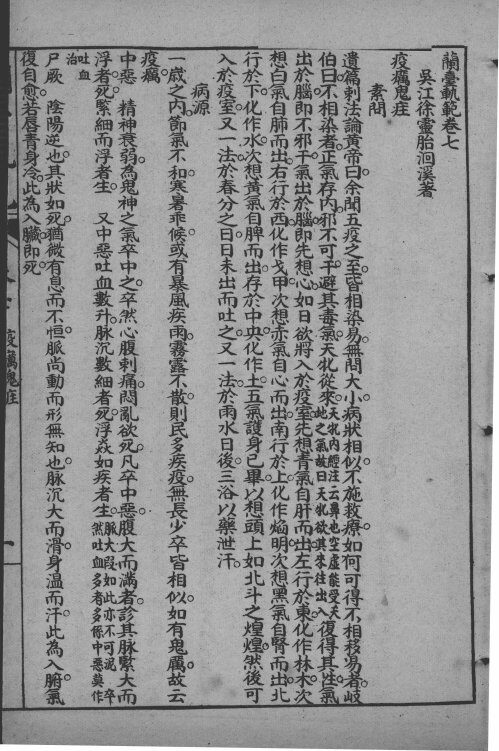 蘭臺軌範卷七
吳江徐靈胎洄溪著
疫癘鬼疰
素問
遺篇刺法論黃帝曰余聞五疫之至皆相染易無問大小病狀相似不施救療如何可得不相移易者岐
伯曰不相染者正氣存內邪不可干避其毒氣天牝從來天牝內經注云鼻也空虛能受天地之氣故曰天牝欲其來往出入復得其往氣
出於腦即不邪干氣出於腦即先想心如日欲將入於疫室先想青氣自肝而出左行於東化作林木次
想白氣自肺而出右行於西化作戈甲次想赤氣自心而出南行於上化作焰明次想黑氣自腎而出北
行於下化作水次想黃氣自脾而出存於中央化作土五氣護身已畢以想頭上如北斗之煌煌然後可
入於疫室又一法於春分之日日未出而吐之又一法於雨水日後三浴以藥泄汗
病源
一歲之內節氣不和寒暑乖候或有暴風疾雨霧露不散則民多疾疫無長少卒皆相似如有鬼厲故云
疫癘
中惡 精神衰弱為鬼神之氣卒中之卒然心腹刺痛悶亂欲死凡卒中惡腹大而滿者診其脈緊大而
浮者死緊細而浮者生 又中惡吐血數升脈沉數細者死浮焱如疾者生脈大段如此亦不可泥 卒然吐血多者多係中惡莫作
吐血治
尸厥 陰陽逆也其狀如死猶微有息而不恒脈尚動而形無知也脈沉大而滑身溫而汗此為入腑氣
復自愈若唇青身冷此為入臟即死
疫癘鬼疰
一